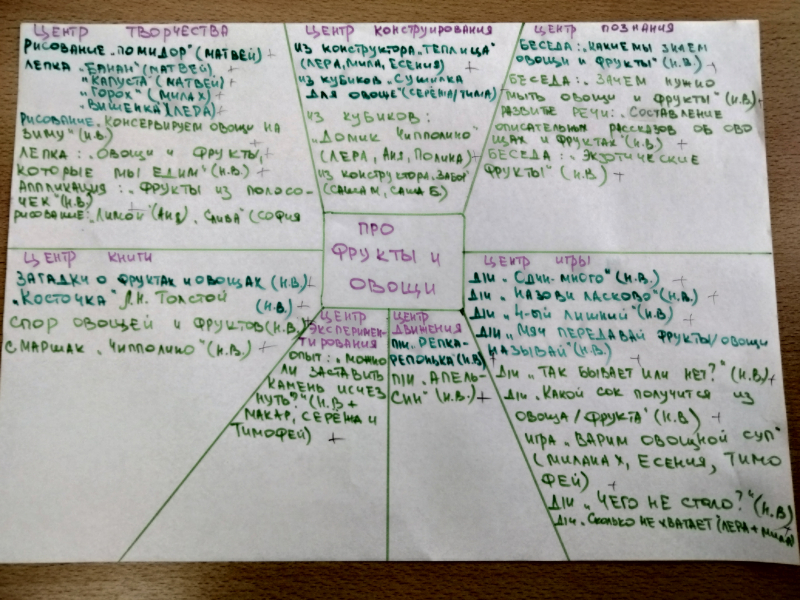 ЦЕНТР ТВОРЧЕСТВА
РИСОВАНИЕ „ПОМИДОР" (МАТВЕЙ) +
ЛЕПКА „БАНАН" (МАТВЕЙ) +
„КАПУСТА" (МАТВЕЙ) +
„ГОРОХ" (МИЛА Х) +
„ВИШЕНКА" (ЛЕРА) +
РИСОВАНИЕ „КОНСЕРВИРУЕМ ОВОЩИ НА
ЗИМУ" (И.В.)
ЛЕПКА: „ОВОЩИ И ФРУКТЫ,
КОТОРЫЕ МЫ ЕДИМ" (Н.В.) +
АППЛИКАЦИЯ: „ФРУКТЫ ИЗ ПОЛОСО-
ЧЕК" (Н.В)
РИСОВАНИЕ: „ЛИМОН" (АНЯ), „СЛИВА" (СОФИЯ
ЦЕНТР КОНСТРУИРОВАНИЯ
ИЗ КОНСТРУКТОРА „ТЕПЛИЦА"
(ЛЕРА, МИЛА, ЕСЕНИЯ) +
ИЗ КУБИКОВ „СУШИЛКА
ДЛЯ ОВОЩЕ" (СЕРЁЖА/ТИМА)
ИЗ КУБИКОВ:
„ДОМИК ЧИППОЛИНО"
(ЛЕРА, АНЯ, ПОЛИНА) +
ИЗ КОНСТРУКТОРА „ЗАБОР"
(САША М, САША Б.)
ЦЕНТР ПОЗНАНИЯ
БЕСЕДА: „КАКИЕ МЫ ЗНАЕМ
ОВОЩИ И ФРУКТЫ" (Н.В.) +
БЕСЕДА: „ЗАЧЕМ НУЖНО
МЫТЬ ОВОЩИ И ФРУКТЫ" (Н.В) +
РАЗВИТИЕ РЕЧИ: „СОСТАВЛЕНИЕ
ОПИСАТЕЛЬНЫХ РАССКАЗОВ ОБ ОВО
ЩАХ И ФРУКТАХ" (Н.В) +
БЕСЕДА: „ЭКЗОТИЧЕСКИЕ
ФРУКТЫ" (Н.В) +
ПРО
ФРУКТЫ И
ОВОЩИ
ЦЕНТР КНИГИ
ЗАГАДКИ О ФРУКТАХ И ОВОЩАХ (Н.В) +
„КОСТОЧКА" Л.Н. ТОЛСТОЙ
(Н.В) +
СПОР ОВОЩЕЙ И ФРУКТОВ (Н.В.)
С МАРШАК „ЧИППОЛИНО" (Н.В.) +
ЦЕНТР
ЭКСПЕРИМЕН-
ТИРОВАНИЯ
ОПЫТ: „МОЖНО
ЛИ ЗАСТАВИТЬ
КАМЕНЬ ИСЧЕЗ
НУТЬ?" (Н.В +
МАКАР, СЕРЁЖА И
ТИМОФЕЙ) +
ЦЕНТР
ДВИЖЕНИЯ
П/И „РЕПКА-
РЕПОНЬКА" (Н.В)
П/И „АПЕЛЬ-
СИН" (Н.В.) +
ЦЕНТР ИГРЫ
Д/И „ОДИН-МНОГО" (Н.В.) +
Д/И „НАЗОВИ ЛАСКОВО" (Н.В.) +
Д/И „4-ЫЙ ЛИШНИЙ" (Н.В) +
Д/И „МЯЧ ПЕРЕДАВАЙ ФРУКТЫ/ОВОЩИ
НАЗЫВАЙ" (Н.В) +
Д/И „ТАК БЫВАЕТ ИЛИ НЕТ?" (Н.В) +
Д/И „КАКОЙ СОК ПОЛУЧИТСЯ ИЗ
ОВОЩА/ФРУКТА" (Н.В) +
ИГРА „ВАРИМ ОВОЩНОЙ СУП"
(МИЛАНА Х, ЕСЕНИЯ, ТИМО
ФЕЙ) +
Д/И „ЧЕГО НЕ СТАЛО?" (Н.В)
Д/И „СКОЛЬКО НЕ ХВАТАЕТ (ЛЕРА + МИЛА)